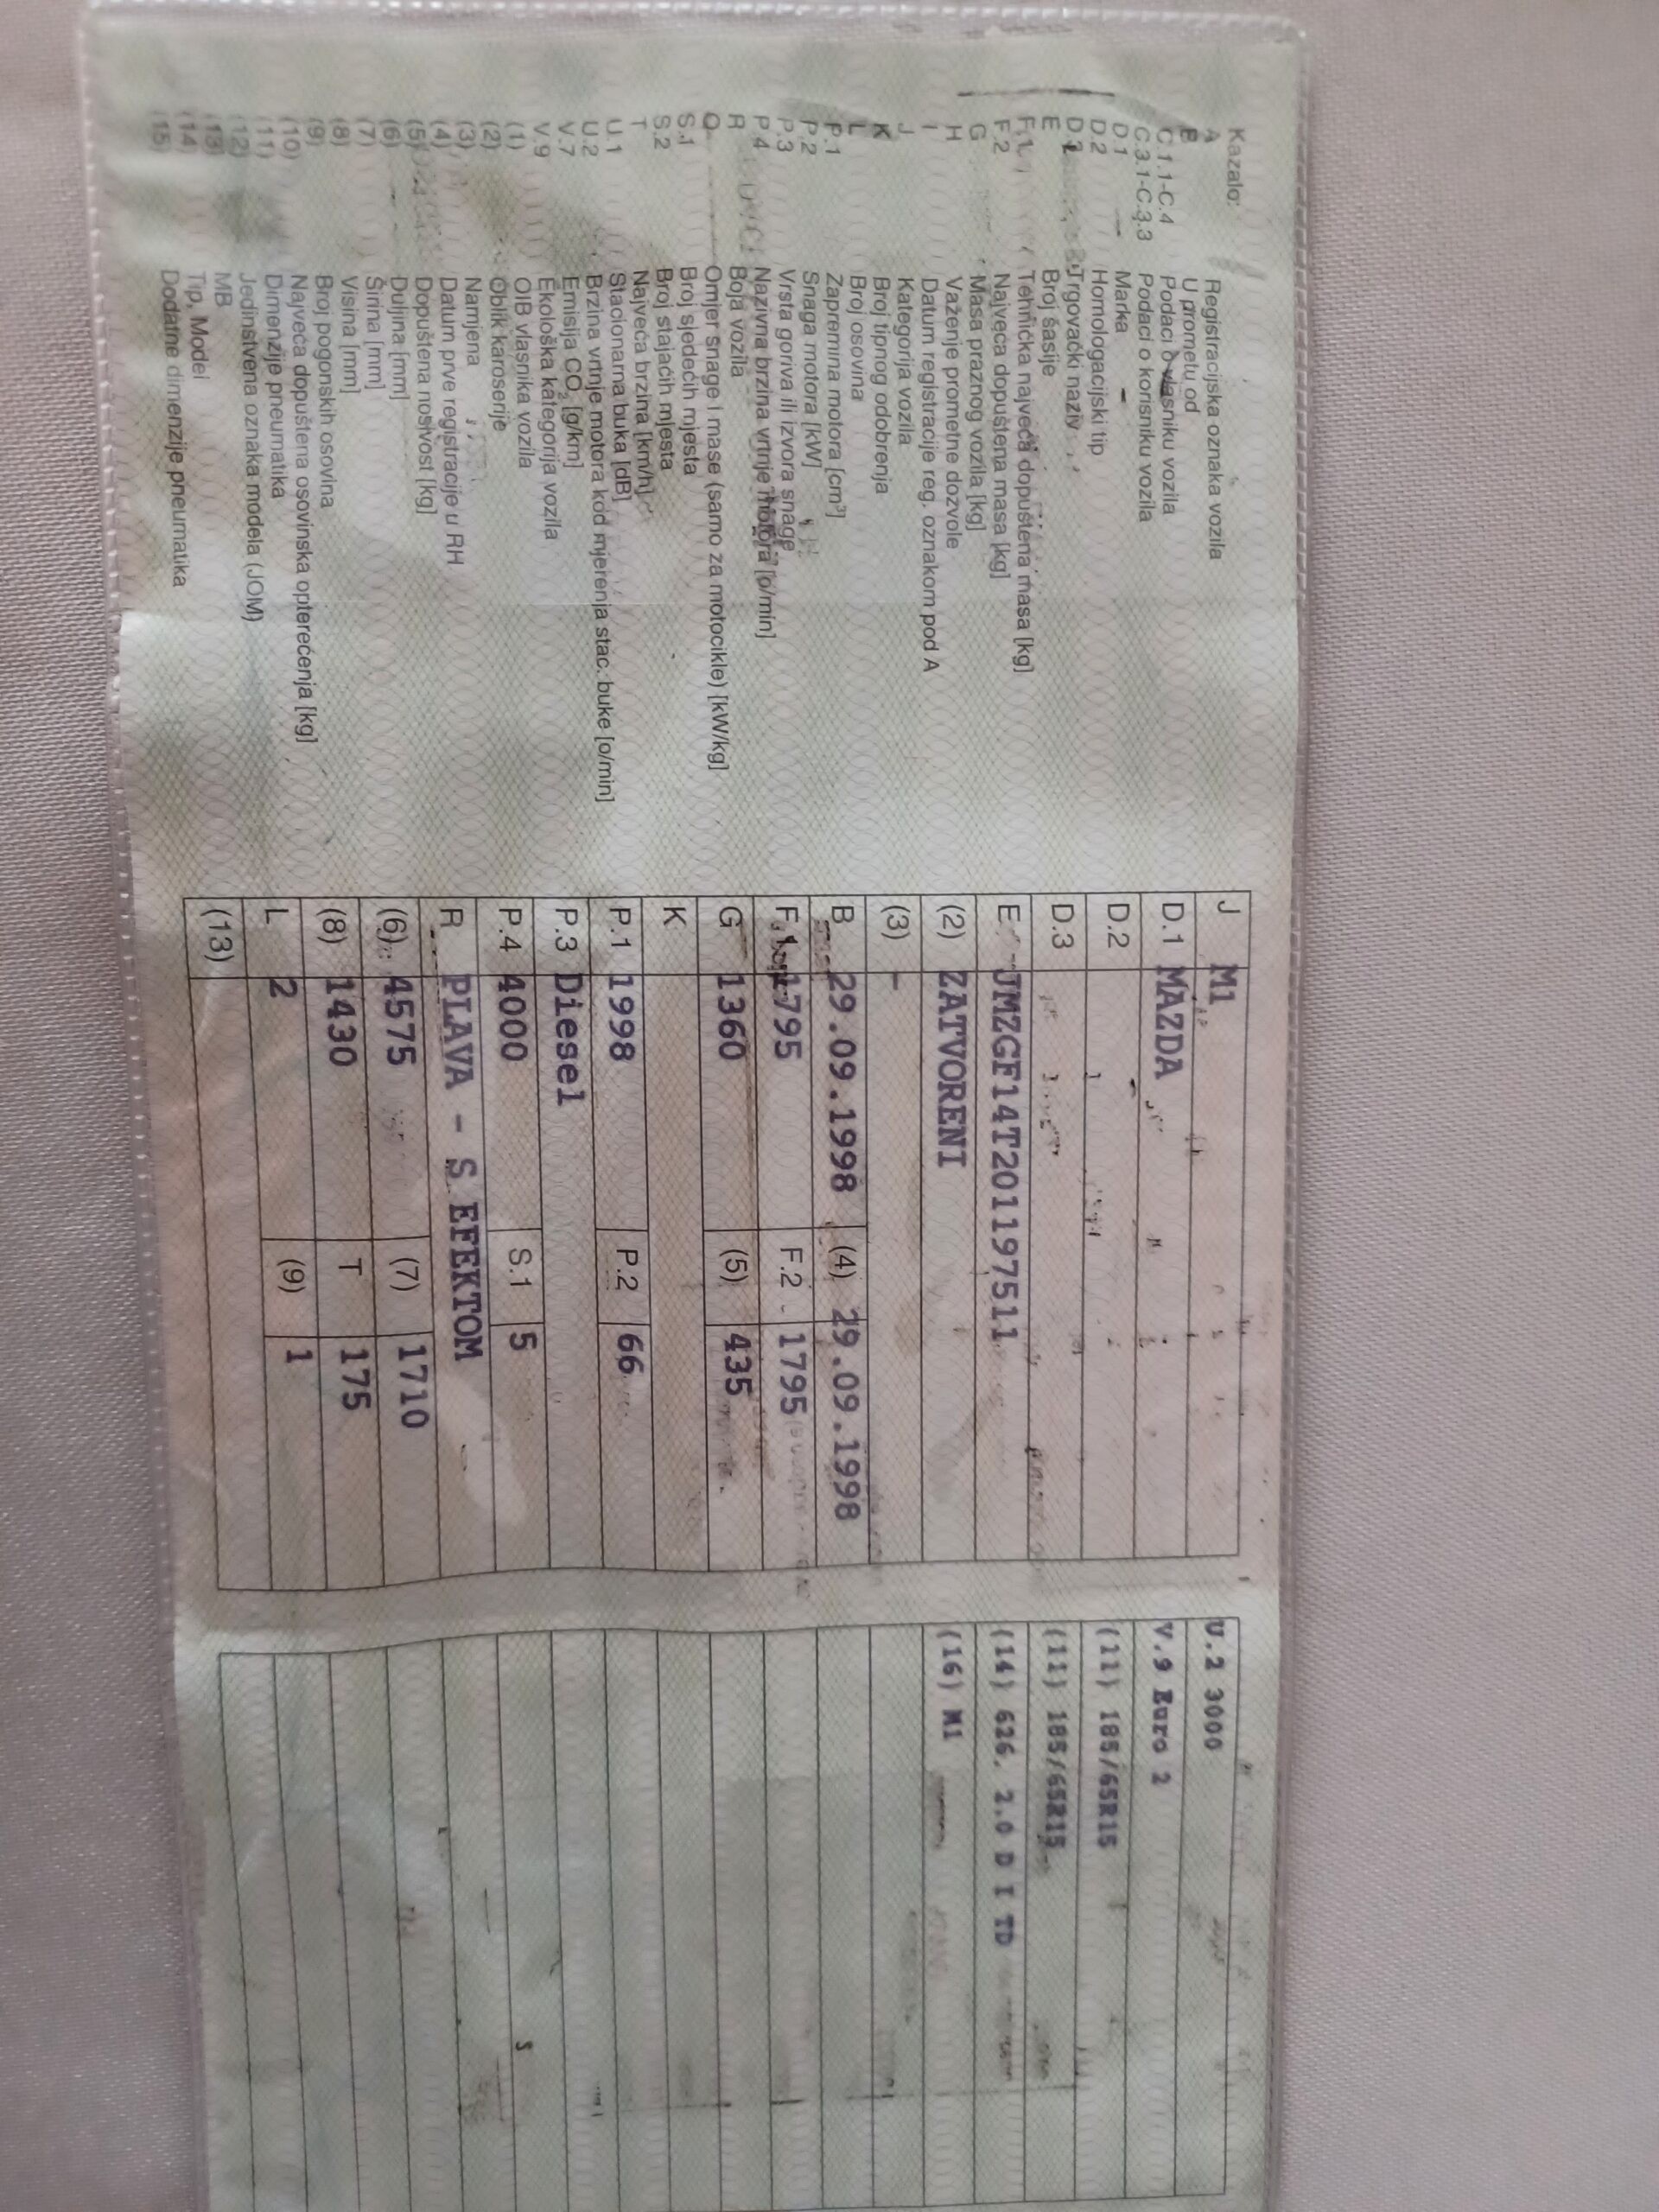 Kazalo:
A Registracijska oznaka vozila
B U prometu od
C.1.1-C.4 Podaci o vlasniku vozila
C.3.1-C.3.3 Podaci o korisniku vozila
D.1 Marka
D.2 Homologacijski tip
D.3 Trgovački naziv
E Broj šasije
F.1 Tehnička najveća dopuštena masa [kg]
F.2 Najveća dopuštena masa [kg]
G Masa praznog vozila [kg]
H Važenje prometne dozvole
I Datum registracije reg. oznakom pod A
J Kategorija vozila
K Broj tipnog odobrenja
L Broj osovina
P.1 Zapremina motora [cm³]
P.2 Snaga motora [kW]
P.3 Vrsta goriva ili izvora snage
P.4 Nazivna brzina vrtnje motora [o/min]
R Boja vozila
Q Omjer snage i mase (samo za motocikle) [kW/kg]
S.1 Broj sjedećih mjesta
S.2 Broj stajaćih mjesta
T Najveća brzina [km/h]
U.1 Stacionarna buka [dB]
U.2 Brzina vrtnje motora kod mjerenja stac. buke [o/min]
V.7 Emisija CO₂ [g/km]
V.9 Ekološka kategorija vozila
(1) OIB vlasnika vozila
(2) Oblik karoserije
(3) Namjena
(4) Datum prve registracije u RH
(5) Dopuštena nosivost [kg]
(6) Duljina [mm]
(7) Širina [mm]
(8) Visina [mm]
(9) Broj pogonskih osovina
(10) Najveća dopuštena osovinska opterećenja [kg]
(11) Dimenzije pneumatika
(12) Jedinstvena oznaka modela (JOM)
(13) MB
(14) Tip, Model
(15) Dodatne dimenzije pneumatika
J M1
D.1 MAZDA
D.2
D.3
E JMZGF14T201197511
(2) ZATVORENI
(3) -
B 29.09.1998 (4) 29.09.1998
F.1 1795 F.2 1795
G 1360 (5) 435
K
P.1 1998 P.2 66
P.3 Diesel
P.4 4000 S.1 5
R PLAVA - S EFEKTOM
(6) 4575 (7) 1710
(8) 1430 T 175
L 2 (9) 1
(13)
U.2 3000
V.9 Euro 2
(11) 185/65R15
(11) 185/65R15
(14) 626, 2.0 D I TD
(16) M1